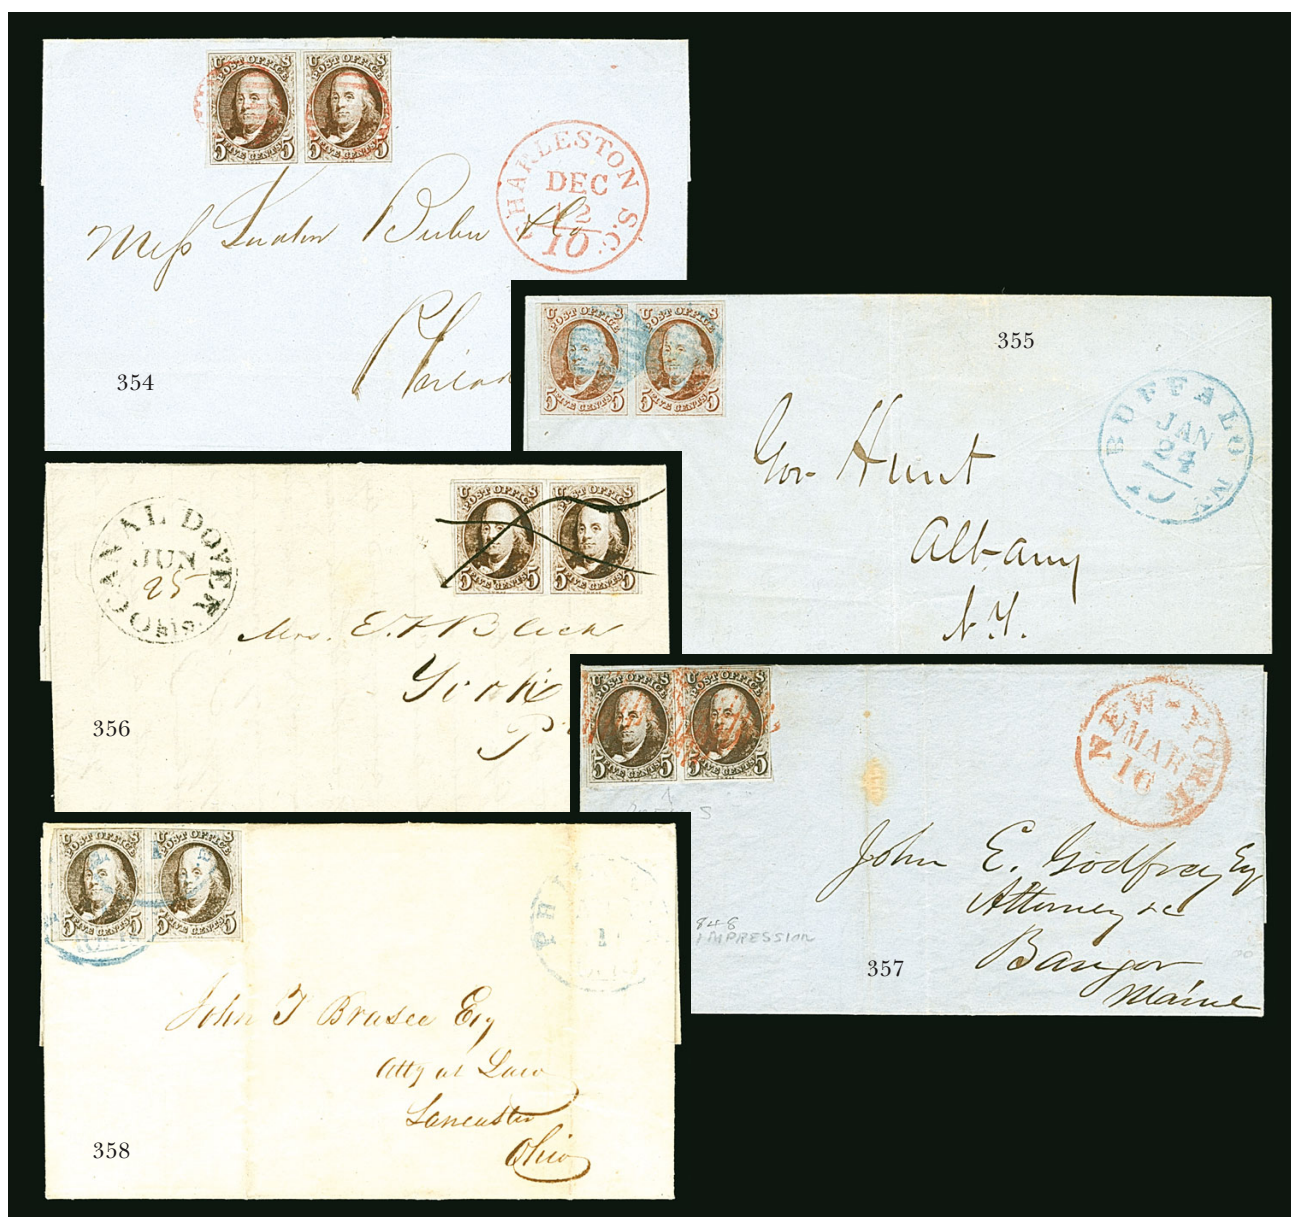 U S
POST OFFICE
5 FIVE CENTS 5
U S
POST OFFICE
5 FIVE CENTS 5
CHARLESTON S.C.
DEC
12
10
Mess & Co
354
U S
POST OFFICE
5 FIVE CENTS 5
U S
POST OFFICE
5 FIVE CENTS 5
355
BUFFALO N.Y.
JAN
24
Gov Hunt
Albany
N.Y.
CANAL DOVER
JUN
25
Ohio.
U S
POST OFFICE
5 FIVE CENTS 5
U S
POST OFFICE
5 FIVE CENTS 5
Mrs. E. Black
York
P
356
U S
POST OFFICE
5 FIVE CENTS 5
U S
POST OFFICE
5 FIVE CENTS 5
NEW-YORK
MAR
16
John E. Godfrey Esq
Attorney &c
Bangor
Maine
848
IMPRESSION
357
U S
POST OFFICE
5 FIVE CENTS 5
U S
POST OFFICE
5 FIVE CENTS 5
PH
John T Brasee Esq
Atty at Law
Lancaster
Ohio
358